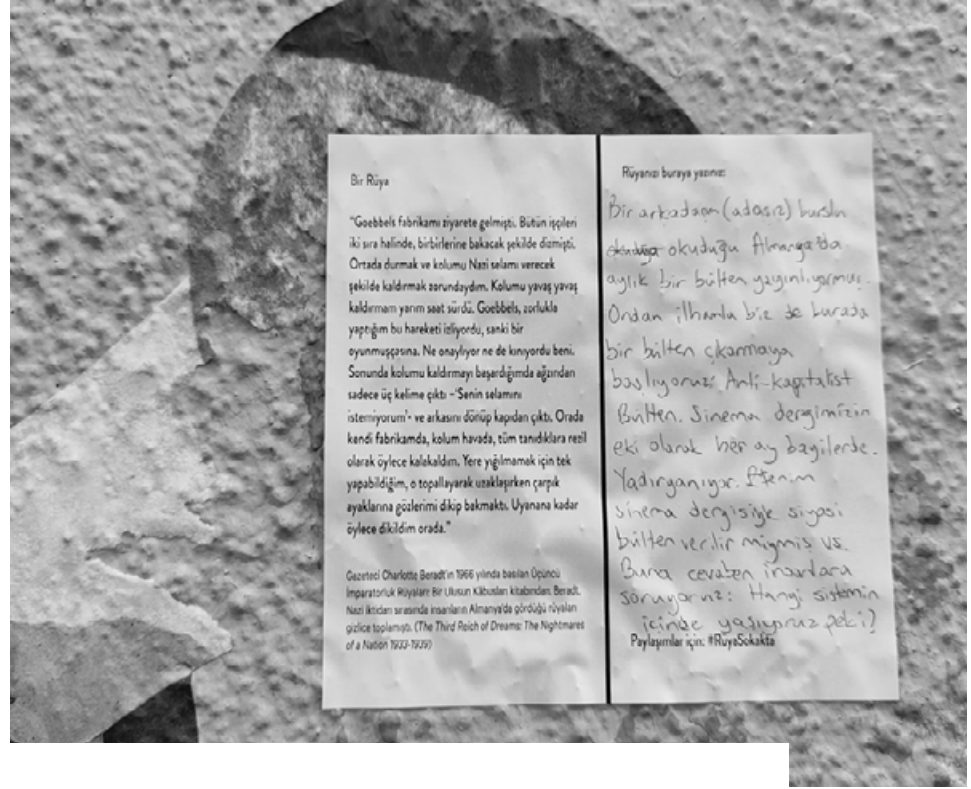 Bir Rüya
"Goebbels fabrikamı ziyarete gelmişti. Bütün işçileri
iki sıra halinde, birbirlerine bakacak şekilde dizmişti.
Ortada durmak ve kolumu Nazi selamı verecek
şekilde kaldırmak zorundaydım. Kolumu yavaş yavaş
kaldırmam yarım saat sürdü. Goebbels, zorlukla
yaptığım bu hareketi izliyordu, sanki bir
oyunmuşçasına. Ne onaylıyor ne de kınıyordu beni.
Sonunda kolumu kaldırmayı başardığımda ağzından
sadece üç kelime çıktı –'Senin selamını
istemiyorum'- ve arkasını dönüp kapıdan çıktı. Orada
kendi fabrikamda, kolum havada, tüm tanıdıklara rezil
olarak öylece kalakaldım. Yere yığılmamak için tek
yapabildiğim, o topallayarak uzaklaşırken çarpık
ayaklarına gözlerimi dikip bakmaktı. Uyanana kadar
öylece dikildim orada."
Gazeteci Charlotte Beradt'ın 1966 yılında basılan Üçüncü
İmparatorluk Rüyaları: Bir Ulusun Kâbusları kitabından. Beradt,
Nazi iktidarı sırasında insanların Almanya'da gördüğü rüyaları
gizlice toplamıştı. (The Third Reich of Dreams: The Nightmares
of a Nation 1933-1939)
Rüyanızı buraya yazınız:
Bir arkadaşım (adasız) burslu
okuduğu Almanya'da
aylık bir bülten yayınlıyormuş.
Ondan ilhamla biz de burada
bir bülten çıkarmaya
başlıyoruz: Anti-kapitalist
Bülten. Sinema dergimizin
eki olarak her ay bayilerde.
Yadırganıyor. Efenim
sinema dergisiyle siyasi
bülten verilir miymiş vs.
Buna cevaben insanlara
soruyoruz: Hangi sistemin
içinde yaşıyoruz peki?
Paylaşımlar için: #RüyaSokakta